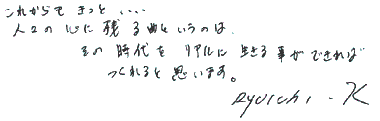 これからもきっと....
人々の心に残る曲というのは、
その時代をリアルに生きる事ができれば
つくれると思います。
Ryoichi - K